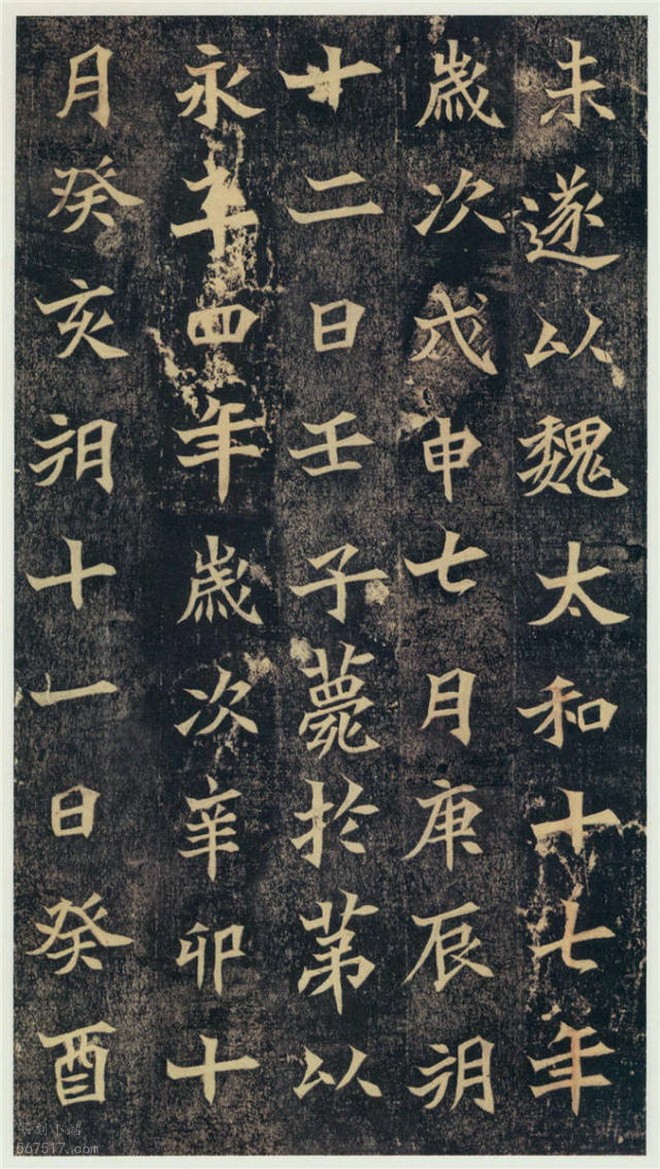 未遂以魏太和十七年
歲次戊申七月庚辰朔
十二日壬子薨於苐以
永平四年歲次辛卯十
月癸亥朔十一日癸酉
567517.com